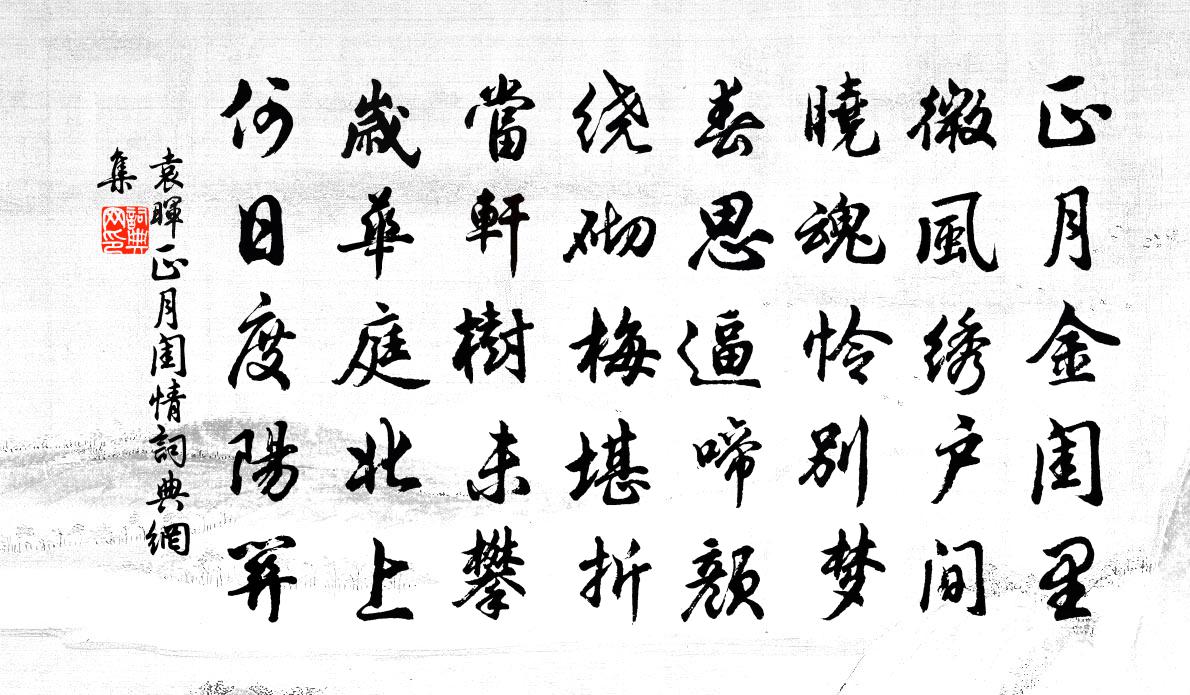 正月金闺里
微風绣户间
曉魂怜别梦
春思逼啼顔
绕砌梅堪折
當軒樹未攀
歲華庭北上
何日度陽関
袁暉正月闺情詞典網
集
詞典网印